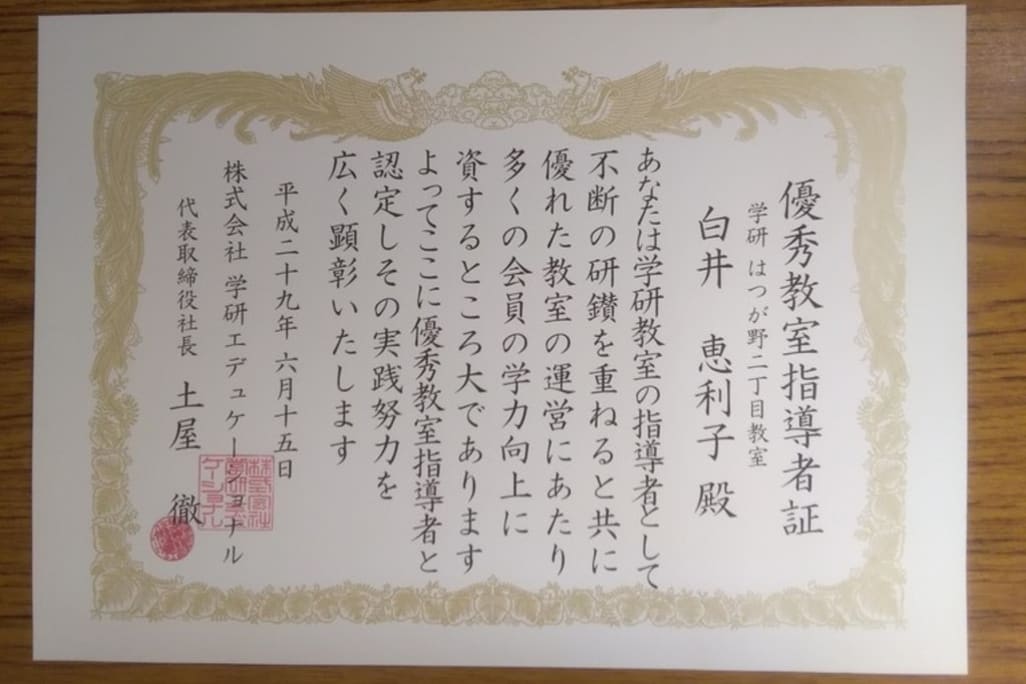 優秀教室指導者証
学研 はつが野二丁目教室
白井 恵利子 殿
あなたは学研教室の指導者として
不断の研鑚を重ねると共に
優れた教室の運営にあたり
多くの会員の学力向上に
資するところ大であります
よってここに優秀教室指導者と
認定しその実践努力を
広く顕彰いたします
平成二十九年 六月十五日
株式会社 学研エデュケーショナル
代表取締役社長 土屋 徹
株式会社
学研エデュ
ケーショナル